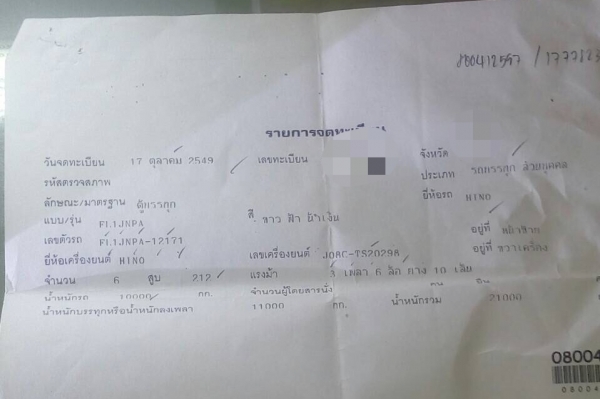 860412597 / 177
รายการจดทะเบียน
วันจดทะเบียน 17 ตุลาคม 2549 เลขทะเบียน จังหวัด
รหัสตรวจสภาพ ประเภท รถบรรทุก ส่วนบุคคล
ลักษณะ/มาตรฐาน ตู้บรรทุก ยี่ห้อรถ HINO
แบบ/รุ่น FL1JNPA สี ขาว ฟ้า น้ำเงิน
เลขตัวรถ FL1JNPA-12171 อยู่ที่ หน้าซ้าย
ยี่ห้อเครื่องยนต์ HINO เลขเครื่องยนต์ J08C-TS20298 อยู่ที่ ขวาเครื่อง
จำนวน 6 สูบ 212 แรงม้า 3 เพลา 6 ล้อ ยาง 10 เส้น
น้ำหนักรถ 10000 กก. จำนวนผู้โดยสารนั่ง คน
น้ำหนักบรรทุกหรือน้ำหนักลงเพลา 11000 กก. น้ำหนักรวม 21000
08004
08004